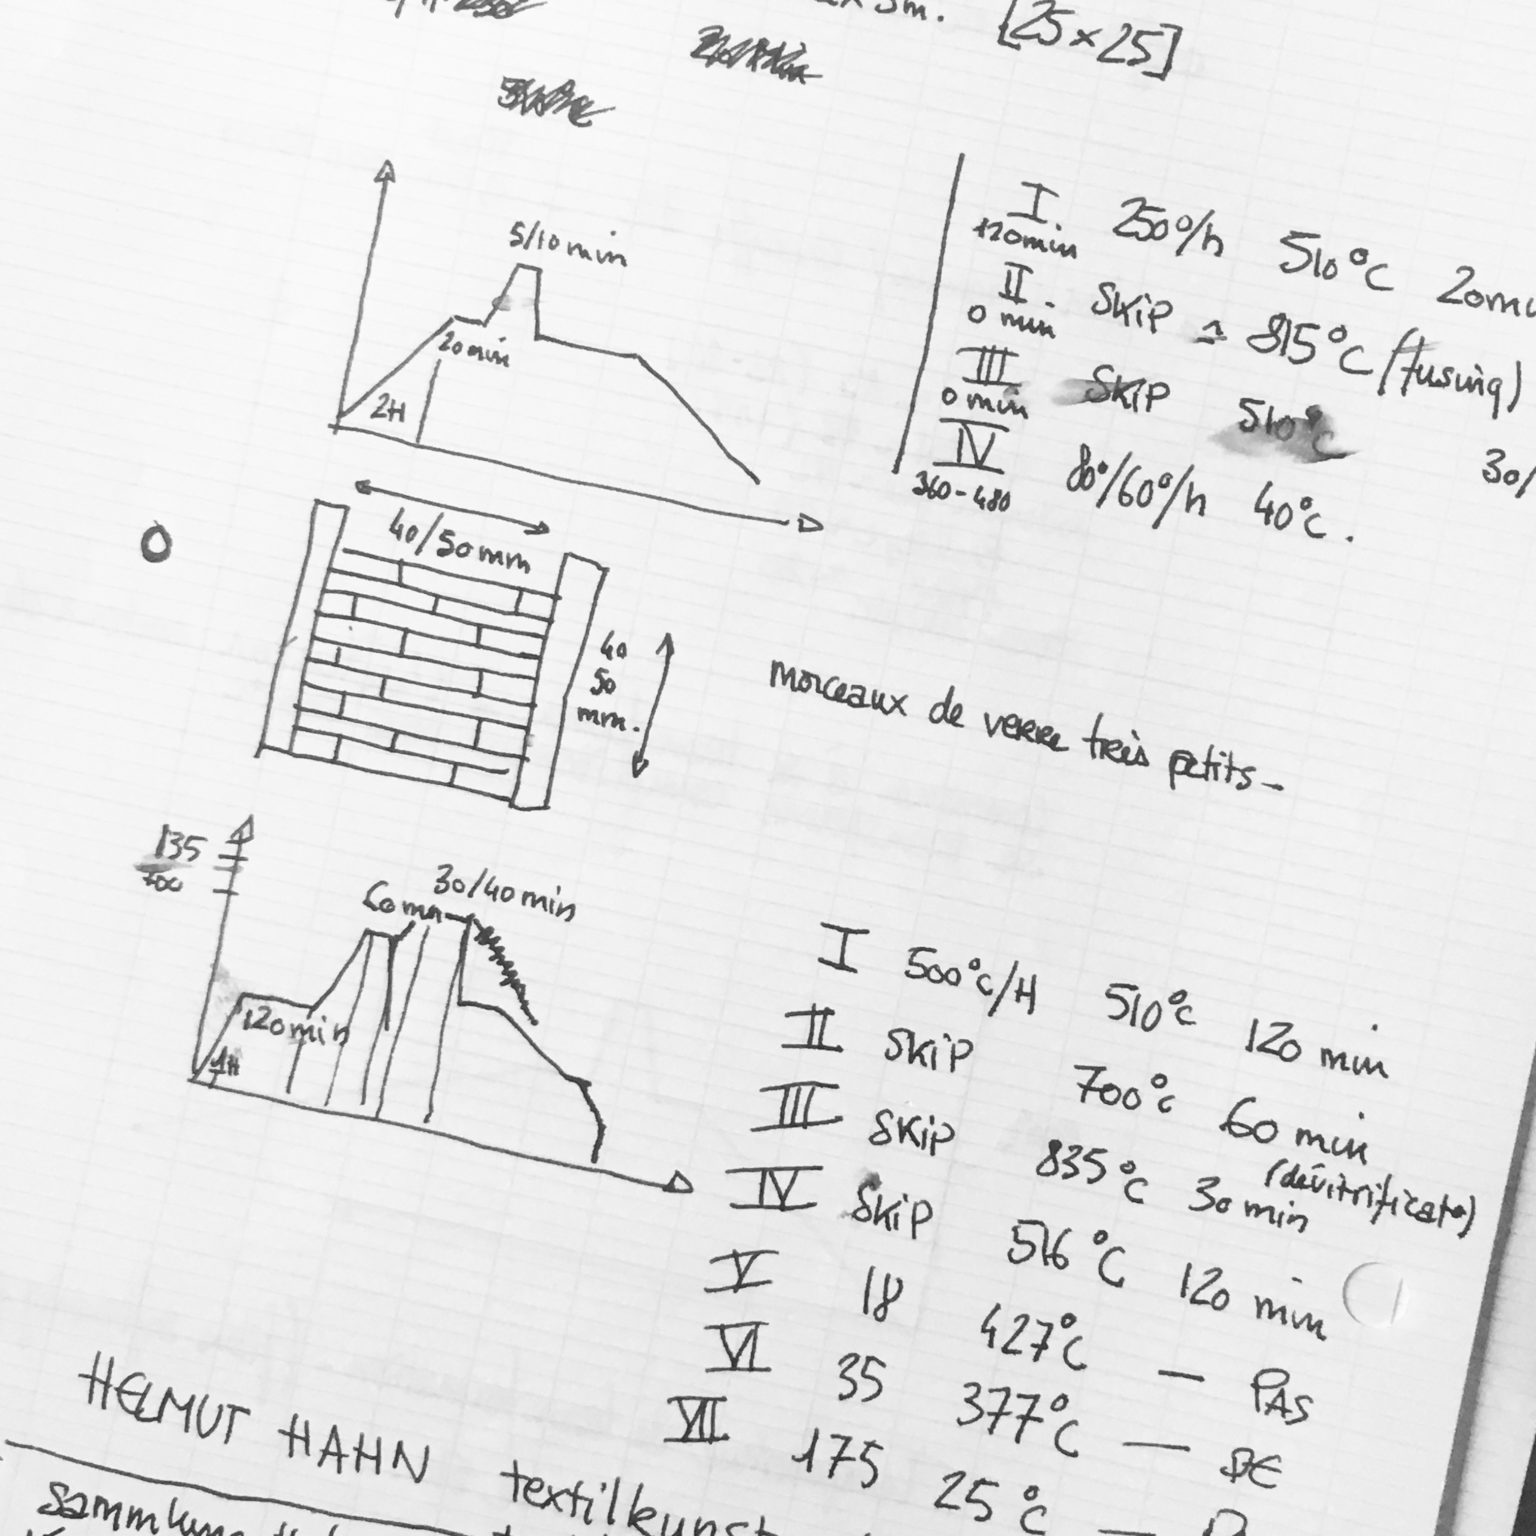 3m. [25×25]
5/10 min
20 min
2H
I. 250°/h 510°C
+20min
II. SKiP = 815°C (fusing)
0 min
III SKiP 510°C 30/
0 min
IV 80°/60°/h 40°C.
360-480
40/50 mm
40
50
mm.
morceaux de verre très petits-
135
700
60 mn 30/40 min
120 min
1H
I 500°C/H 510°C 120 min
II SKiP 700°C 60 min
(dévitrificat°)
III SKiP 835°C 30 min
IV SKiP 516°C 120 min
V 18 427°C — PAS
VI 35 377°C — DE
VII 175 25°C —
HELMUT HAHN textilkunst